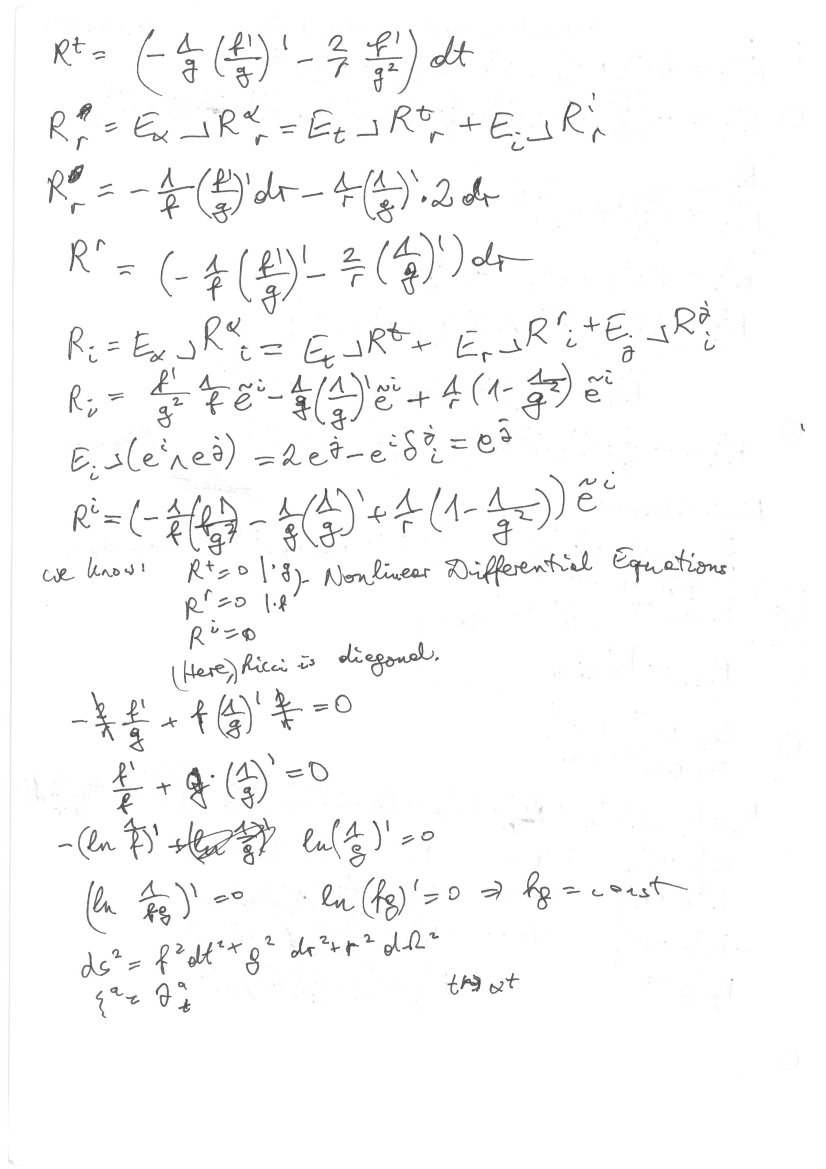 Rᵗ = (- 1/g (f'/g)' - 2/r f'/g²) dt
R_r = E_α ⌟ R^α_r = E_t ⌟ R^t_r + E_i ⌟ R^i_r
R_r = - 1/f (f'/g)' dr - 1/r (1/g)' · 2 dr
R^r = (- 1/f (f'/g)' - 2/r (1/g)') dr
R_i = E_α ⌟ R^α_i = E_t ⌟ R^t + E_r ⌟ R^r_i + E_j ⌟ R^j_i
R_i = f'/g² 1/f ẽ^i - 1/g (1/g)' ẽ^i + 1/r (1 - 1/g²) ẽ^i
E_i ⌟ (e^i ∧ e^j) = 2 e^j - e^i δ^j_i = e^j
R^i = (- 1/f (f'/g²) - 1/g (1/g)' + 1/r (1 - 1/g²)) ẽ^i
we know: R^t = 0 | · g } - Nonlinear Differential Equations
R^r = 0 | · f
R^i = 0
(Here,) Ricci is diagonal.
- 2/r f'/g + f (1/g)' 2/r = 0
f'/f + g · (1/g)' = 0
- (ln 1/f)' + ln (1/g)' = 0
(ln 1/fg)' = 0 ln (fg)' = 0 ⇒ fg = const
ds² = f² dt² + g² dr² + r² dΩ²
ξ^a = ∂^a_t t → αt